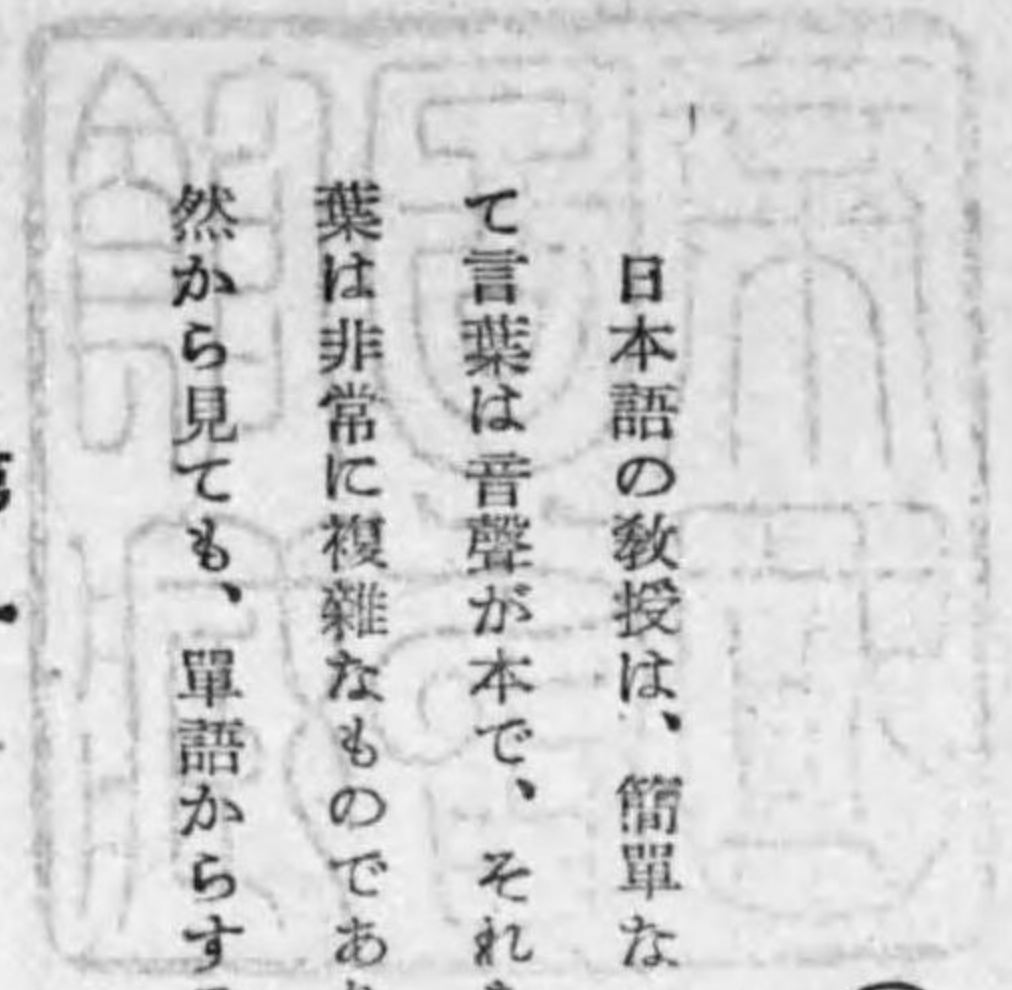 日本語の敎授は、簡單な
て言葉は音聲が本で、それ
葉は非常に複雜なものであ
然から見ても、單語からす